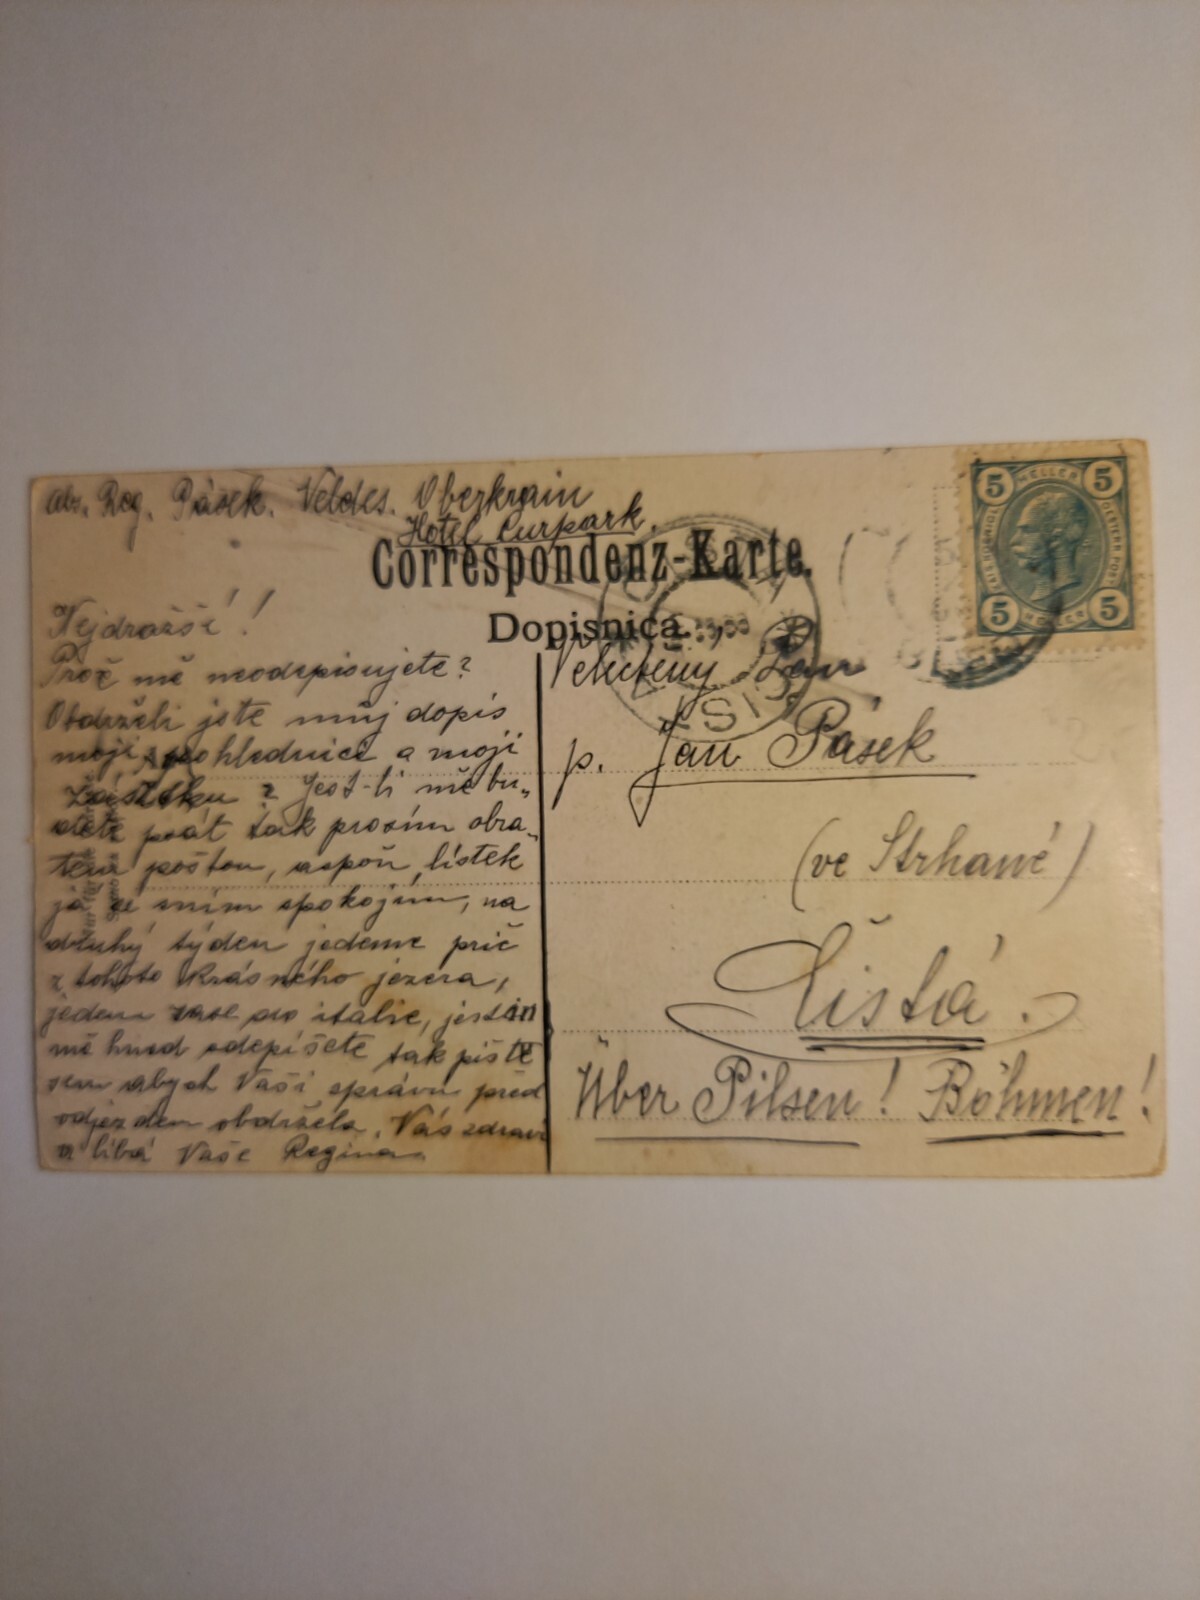 abs. Reg. Pásek. Veldes. Oberkrain
Hotel Curpark.
Correspondenz-Karte.
Dopisnica.
Nejdražší!
Proč mě neodepisujete?
Obdrželi jste můj dopis
moji pohlednici a moji
? Jest-li mě bu„
dete psát tak prosím obra„
tem poštou, aspoň lístek
já se s ním spokojím, na
druhý týden jedeme prič
z tohoto krásného jezera,
jedem zase do italie,
mě hned odepíšete tak pište
sem abych Vaší správu před
odjezdem obdržela. Vás zdraví
a líbá Vaše Regina
Velectěný Pan
p. Jan Pásek
(ve Strhané)
Čistá.
Über Pilsen! Böhmen!
5 HELLER 5
5 HELLER 5